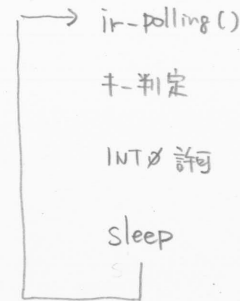 ir-polling()
キー判定
INT0 許可
sleep